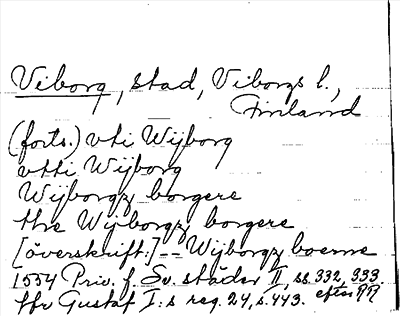 Viborg, stad, Viborgs l.,
Finland
(forts.) vti Wijborg
vtti Wijborg
Wijborgz borgere
the Wijborgz borgere
[överskrift:] -- Wijborgz boerne
1554 Priv. f. Sv. städer II, ss. 332, 333.
Jfr Gustaf I:s reg. 24, s. 443. efter RR